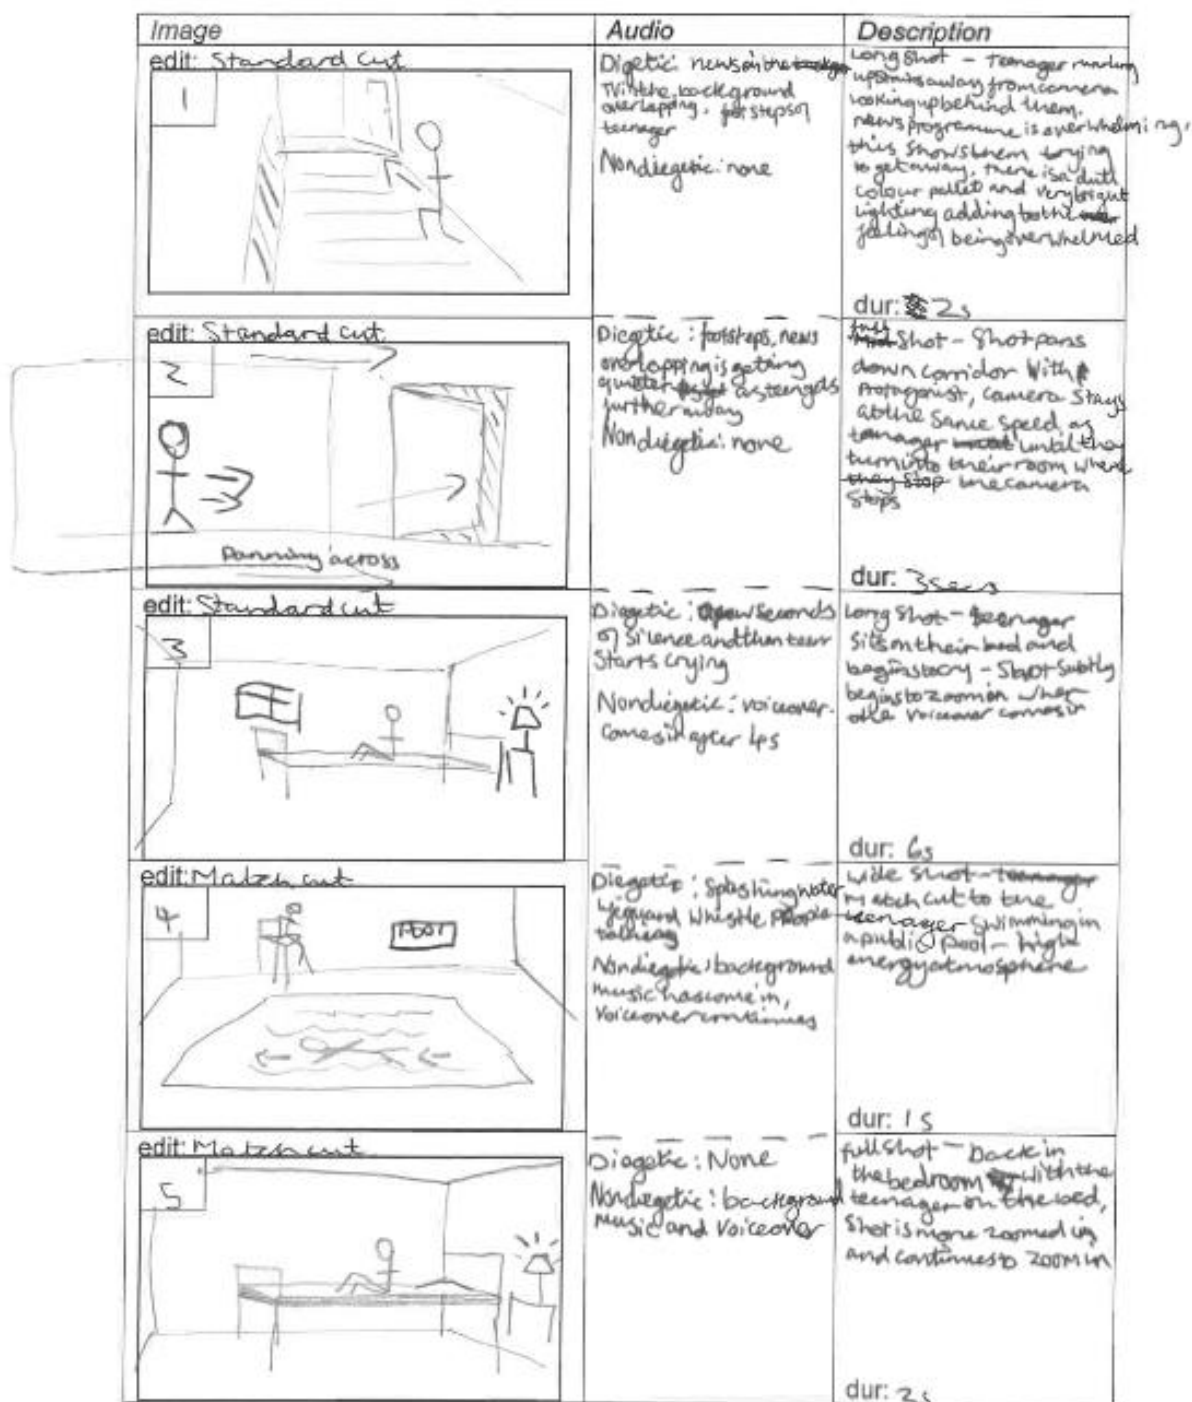 Image
Audio
Description
edit: Standard cut
1
Digetic: news on the
TV in the background
overlapping, footsteps of
teenager
Nondiegetic: none
Long Shot - teenager running
upstairs away from camera
looking up behind them,
news programme is overwhelming,
this shows them trying
to get away. there is a dull
colour pallet and very bright
lighting adding to the
feeling of being overwhelmed
dur: 2s
edit: Standard cut
2
Panning across
Diegetic: footsteps, news
overlapping is getting
quieter as teen gets
further away
Nondiegetic: none
full Shot - Shot pans
down corridor with
Protagonist, camera stays
at the same speed as
teenager until they
turn into their room where
they stop the camera
stops
dur: 3secs
edit: Standard cut
3
Diagetic: a few seconds
of silence and then teen
starts crying
Nondiegetic: voiceover.
comes in after 4s
Long Shot - teenager
sits on their bed and
begins to cry - Shot subtly
begins to zoom in when
the voiceover comes in
dur: 6s
edit: Match cut
4
POOL
Diegetic: Splashing water
lifeguard whistle people
talking
Nondiegetic: background
music has come in,
Voiceover continues
wide shot - teenager
Match cut to the
teenager swimming in
a public pool - high
energy atmosphere
dur: 1s
edit: Match cut
5
Diagetic: None
Nondiegetic: background
Music and Voiceover
full Shot - back in
the bedroom with the
teenager on the bed,
Shot is more zoomed in
and continues to zoom in
dur: 2s